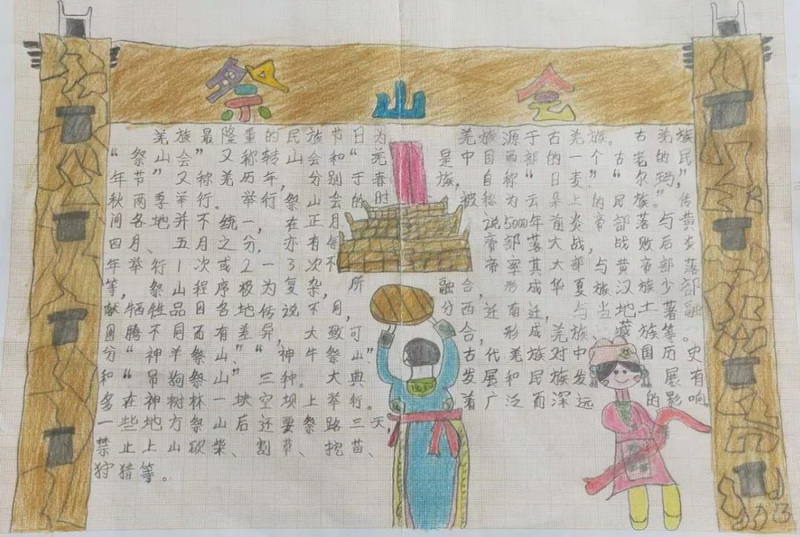 祭山会
羌族最隆重的民族节日为
“祭山会”又称转山会和“羌
年节”又称羌历年,分别于春
秋两季举行。举行祭山会的时
间各地并不统一,在正月、
四月、五月之分,亦有每
年举行1次或2一3次不
等,祭山程序极为复杂,所
献牺牲品因各地传说不同,
图腾不同而有差异,大致可
分“神羊祭山”“神牛祭山”
和“吊狗祭山”三种。大典
多在神树林一块空坝上举行。
一些地方祭山后还要祭路三天,
禁止上山砍柴、割草、挖苗、
狩猎等。
羌族源于古羌族。古羌族
是中国西部的一个古老的民
族,自称“日麦”“尔玛”,
被称为云朵上的民族。传
说5000年前炎帝部落与黄
帝部落大战,战败后炎
帝率其大部与黄帝部落
融合,形成华夏族,少部
分西迁南迁,与当地土著融
合,形成羌族、藏族等。
古代羌族对中国历史
发展和民族发展有
着广泛而深远的影响